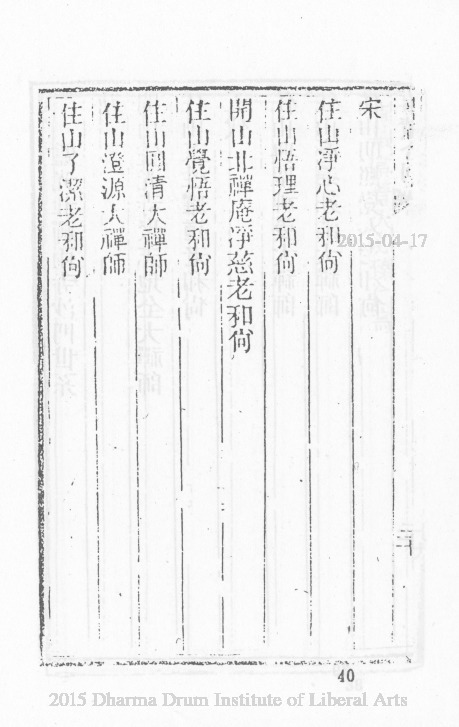 宋
住山淨心老和尙
住山悟理老和尙
開山北禪庵凈慈老和尙
住山覺悟老和尙
住山圓清大禪師
住山澄源大禪師
住山了潔老和尙
2015-04-17
40
2015 Dharma Drum Institute of Liberal Arts